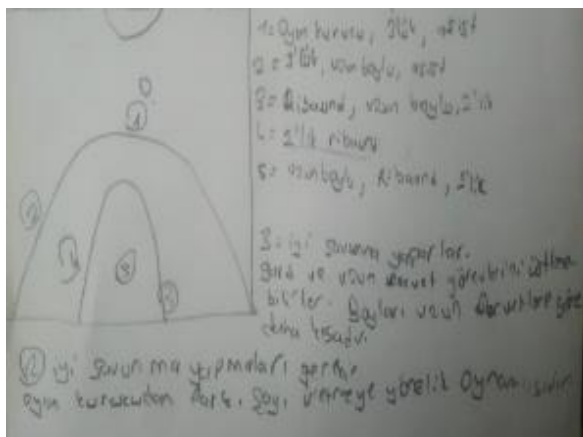 1= Oyun kurucu, 3lük, asist
2 = 3'lük, uzun boylu, asist
3= Ribaund, uzun boylu, 2'lik
4 = 2'lik ribaund
5= uzun boylu, Ribaund, 2'lik
1
2
3
3= iyi savunma yaparlar.
ve uzun forvet görevlerini
bilirler. Boyları uzun forvetlere göre
daha kısadır.
(2) iyi savunma yapmaları gerekir.
oyun kurucudan farkı, sayı üretmeye yönelik